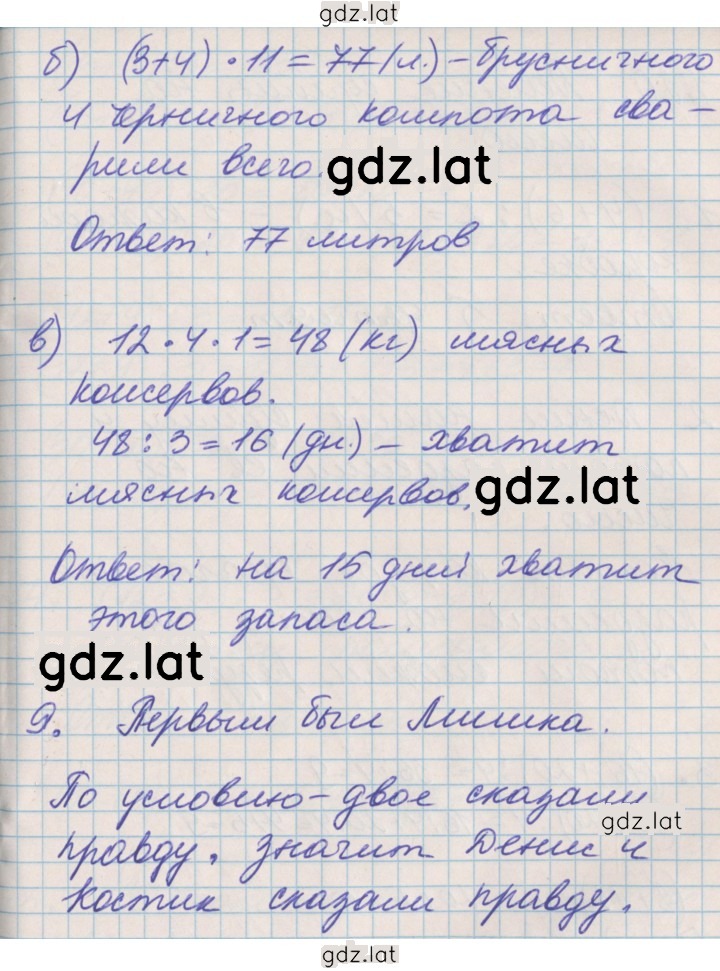 gdz.lat
б) (3+4) · 11 = 77 (л.) – брусничного
и черничного компота сва-
рили всего. gdz.lat
Ответ: 77 литров
в) 12 · 4 · 1 = 48 (кг) мясных
консервов.
48 : 3 = 16 (дн.) – хватит
мясных консервов. gdz.lat
Ответ: на 15 дней хватит
этого запаса.
gdz.lat
9. Первым был Мишка.
По условию – двое сказали
gdz.lat
правду, значит Денис и
Костик сказали правду.
gdz.lat